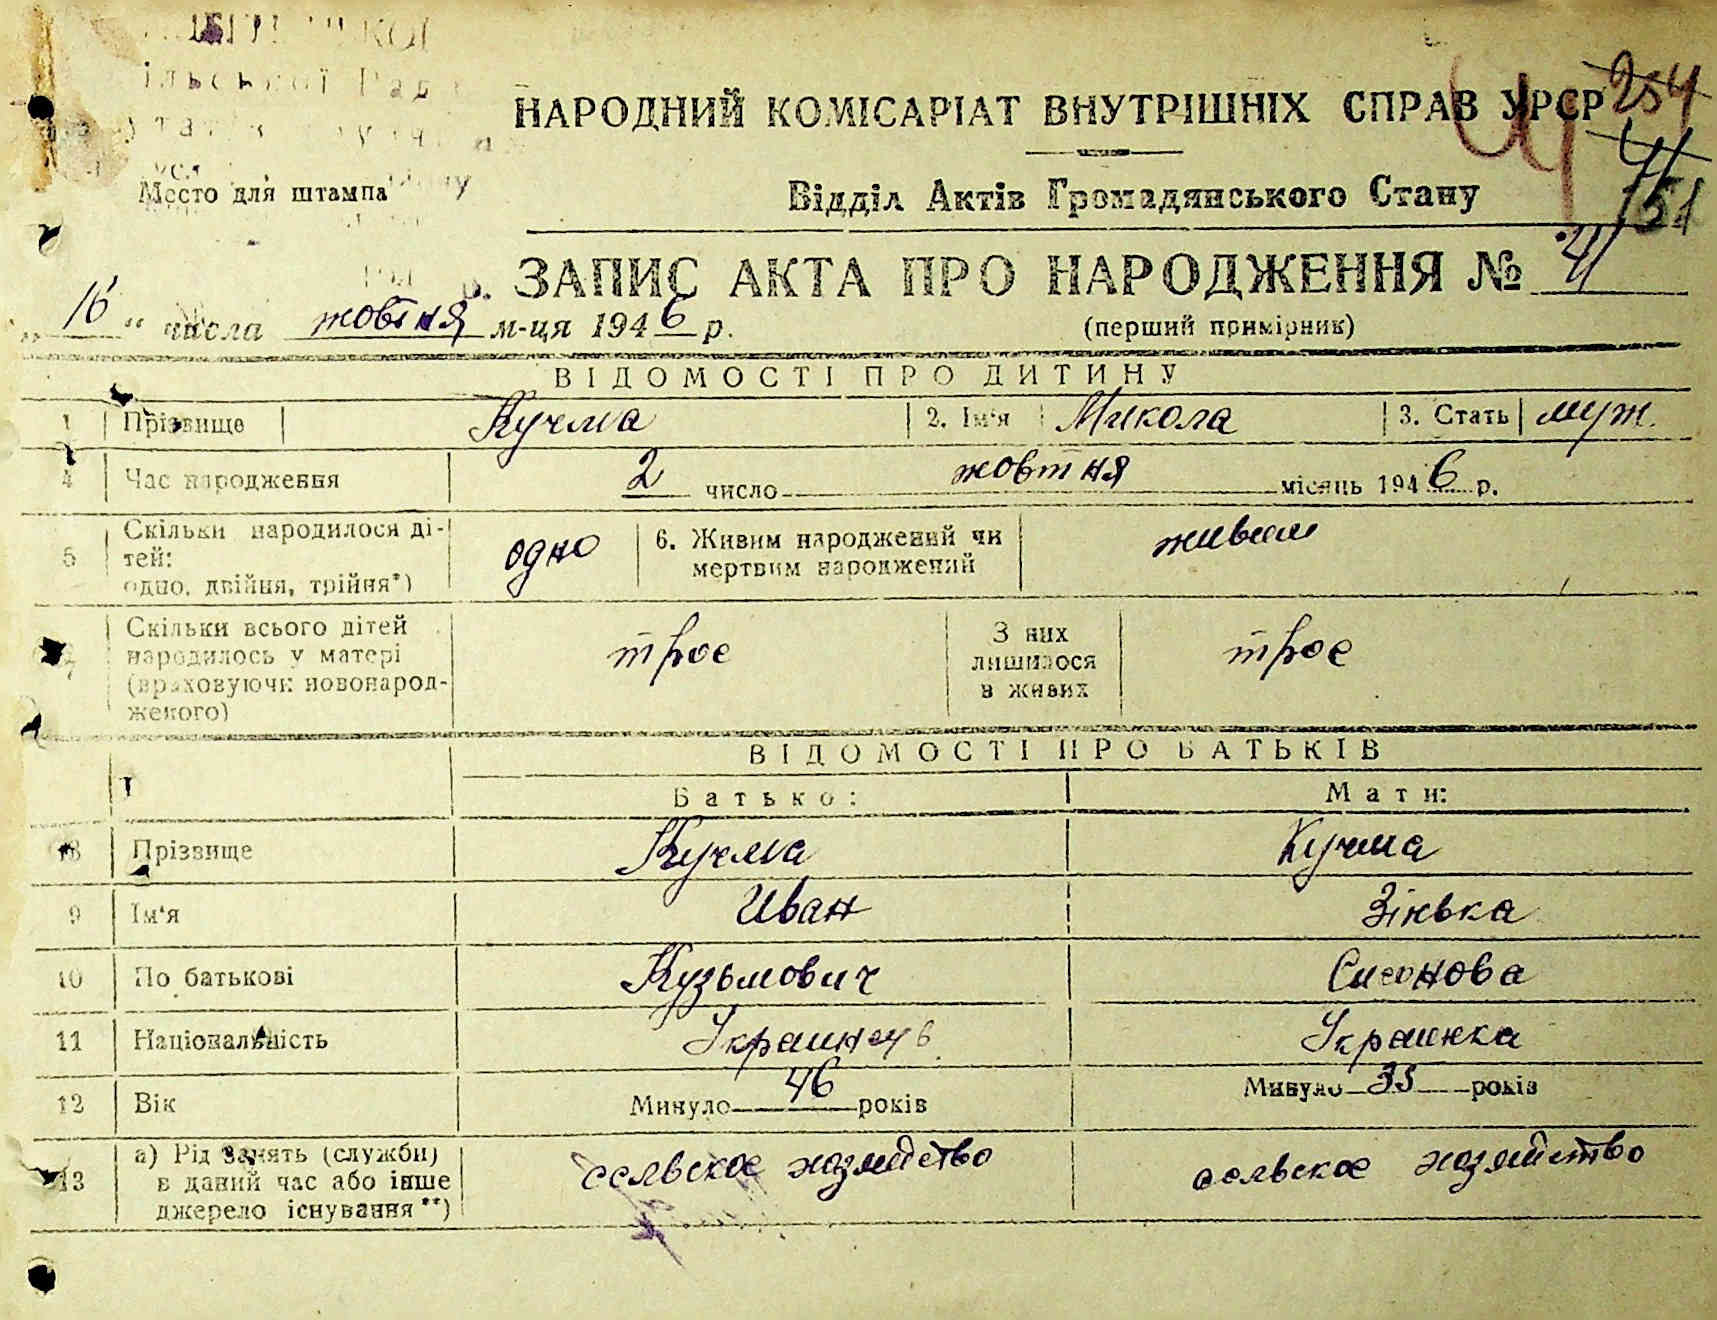 ільської Рад
Место для штампа
НАРОДНИЙ КОМІСАРІАТ ВНУТРІШНІХ СПРАВ УРСР
254
41
151
Відділ Актів Громадянського Стану
ЗАПИС АКТА ПРО НАРОДЖЕННЯ № 41
„ 16 “ числа жовтня м-ця 1946 р. (перший примірник)
ВІДОМОСТІ ПРО ДИТИНУ
1 Прізвище Кучма 2. Ім'я Микола 3. Стать муж.
4 Час народження 2 число жовтня місяць 1946 р.
5 Скільки народилося ді-
тей:
одно, двійня, трійня*) одно 6. Живим народжений чи
мертвим народжений живим
7 Скільки всього дітей
народилось у матері
(враховуючи новонарод-
женого) трое З них
лишилося
в живих трое
ВІДОМОСТІ ПРО БАТЬКІВ
Батько: Мати:
8 Прізвище Кучма Кучма
9 Ім'я Иван Зінька
10 По батькові Кузьмович
11 Національність Украинка
12 Вік Минуло 46 років Минуло 35 років
13 а) Рід занять (служби)
в даний час або інше
джерело існування**) сельское хозяйство сельское хозяйство